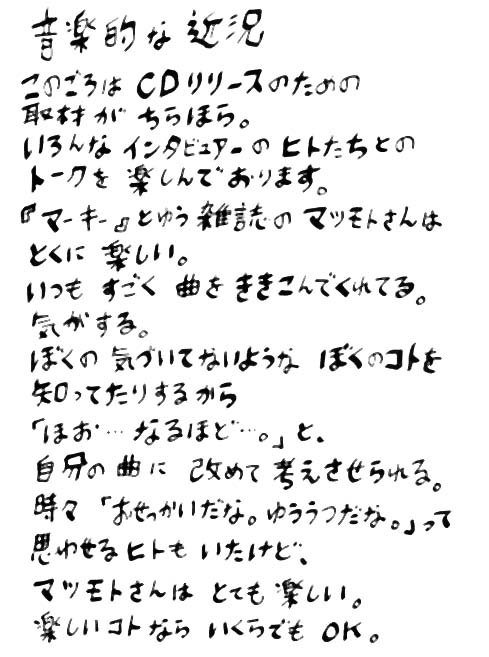 音楽的な近況
このごろは CDリリースのための
取材が ちらほら。
いろんな インタビュアーの ヒトたちとの
トークを 楽しんでおります。
『マーキー』とゆう 雑誌の マツモトさんは
とくに 楽しい。
いつも すごく 曲を ききこんでくれてる。
気がする。
ぼくの 気づいてないような ぼくのコトを
知ってたりするから
「ほお…なるほど…。」と、
自分の曲に 改めて 考えさせられる。
時々「おせっかいだな。ゆううつだな。」って
思わせるヒトも いたけど、
マツモトさんは とても 楽しい。
楽しいコトなら いくらでも OK。